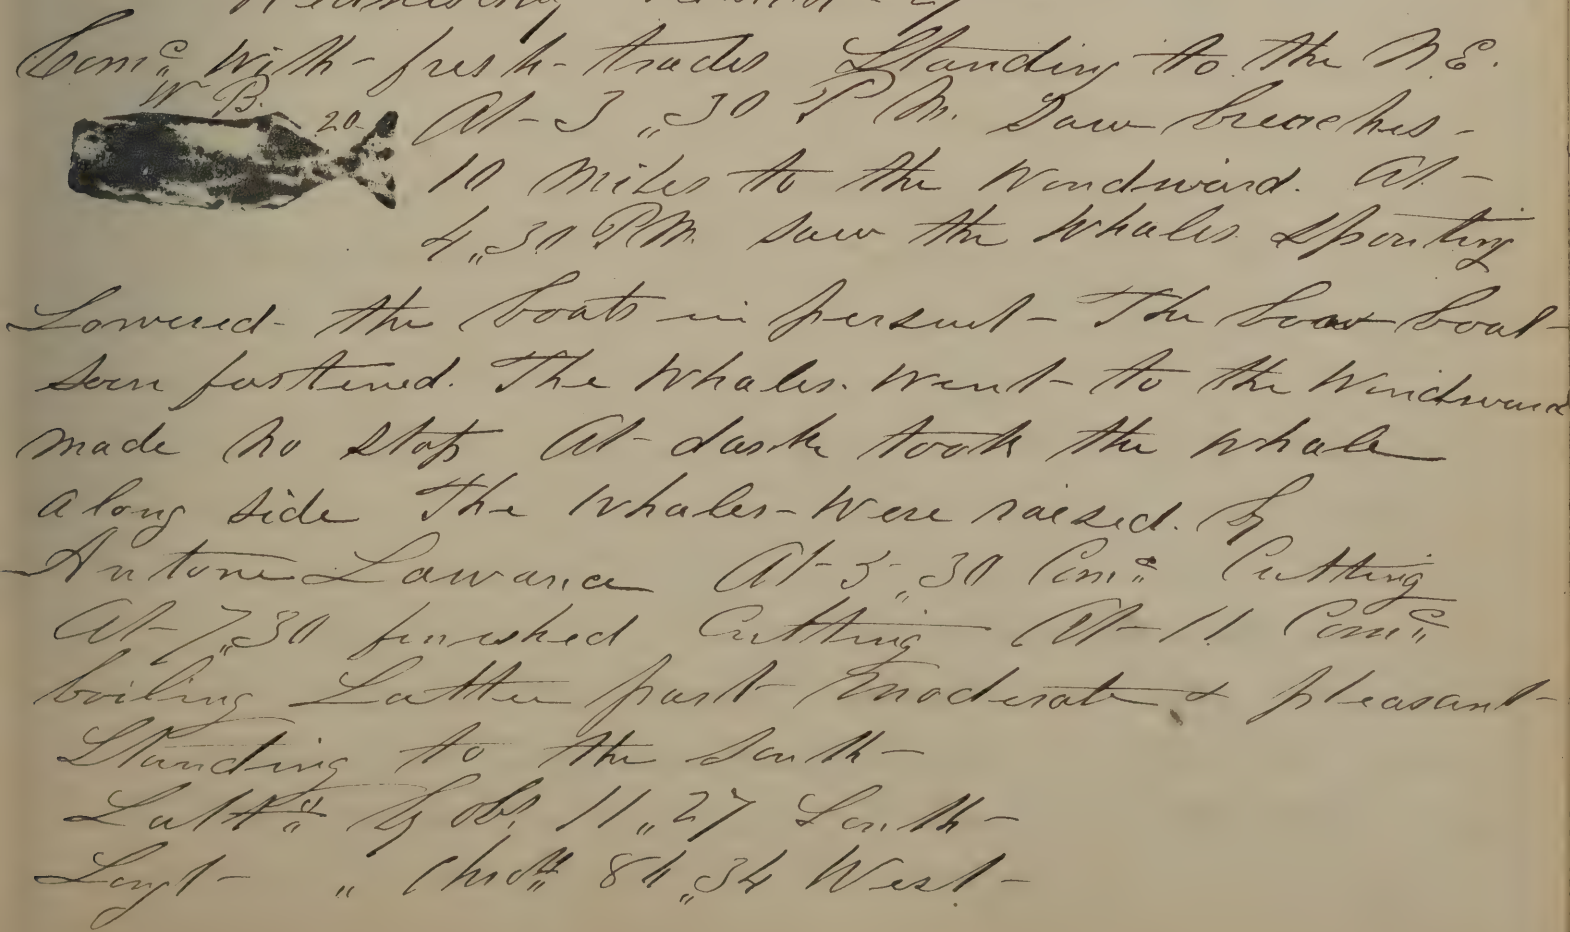 Wednesday
Comc with fresh trades Standing to the N.E.
W B. 20
At 3,,30 P M. Saw breaches
10 miles to the Windward. At
4,,30 PM. saw the Whales spouting
Lowered the boats in persuit The bow boat
soon fastened. The Whales went to the Windward
made no stop At dark took the whale
along side The Whales were raised by
Antone At 5,,30 Comc Cutting
At 7,,30 finished Cutting At 11 Comc
boiling Latter part moderate & pleasant
Standing to the South
by obs. 11,,27 South
Longt ,, 84,,34 West